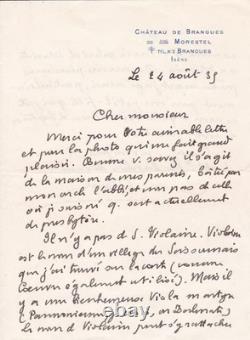 CHÂTEAU DE BRANGUES
MORESTEL
BRANGUES
ISÈRE
Le 24 août 35
Cher monsieur
Merci pour votre aimable lettre
et pour la photo qui me fait grand
plaisir. Comme v. savez il s'agit
de la maison de mes parents, bâtie par
mon arch l'abbé et non pas de celle
où je suis né q. sert actuellement
de presbytère.
Il n'y a pas d S. Violaine. Violaine
est le nom d'un village du Soissonnais
que j'ai trouvé sur la carte (comme
également utilisé). Mais il
y a une Bienheureuse Viola martyre
(Pannoniennes) 
le nom d Violaine peut s'y rattacher